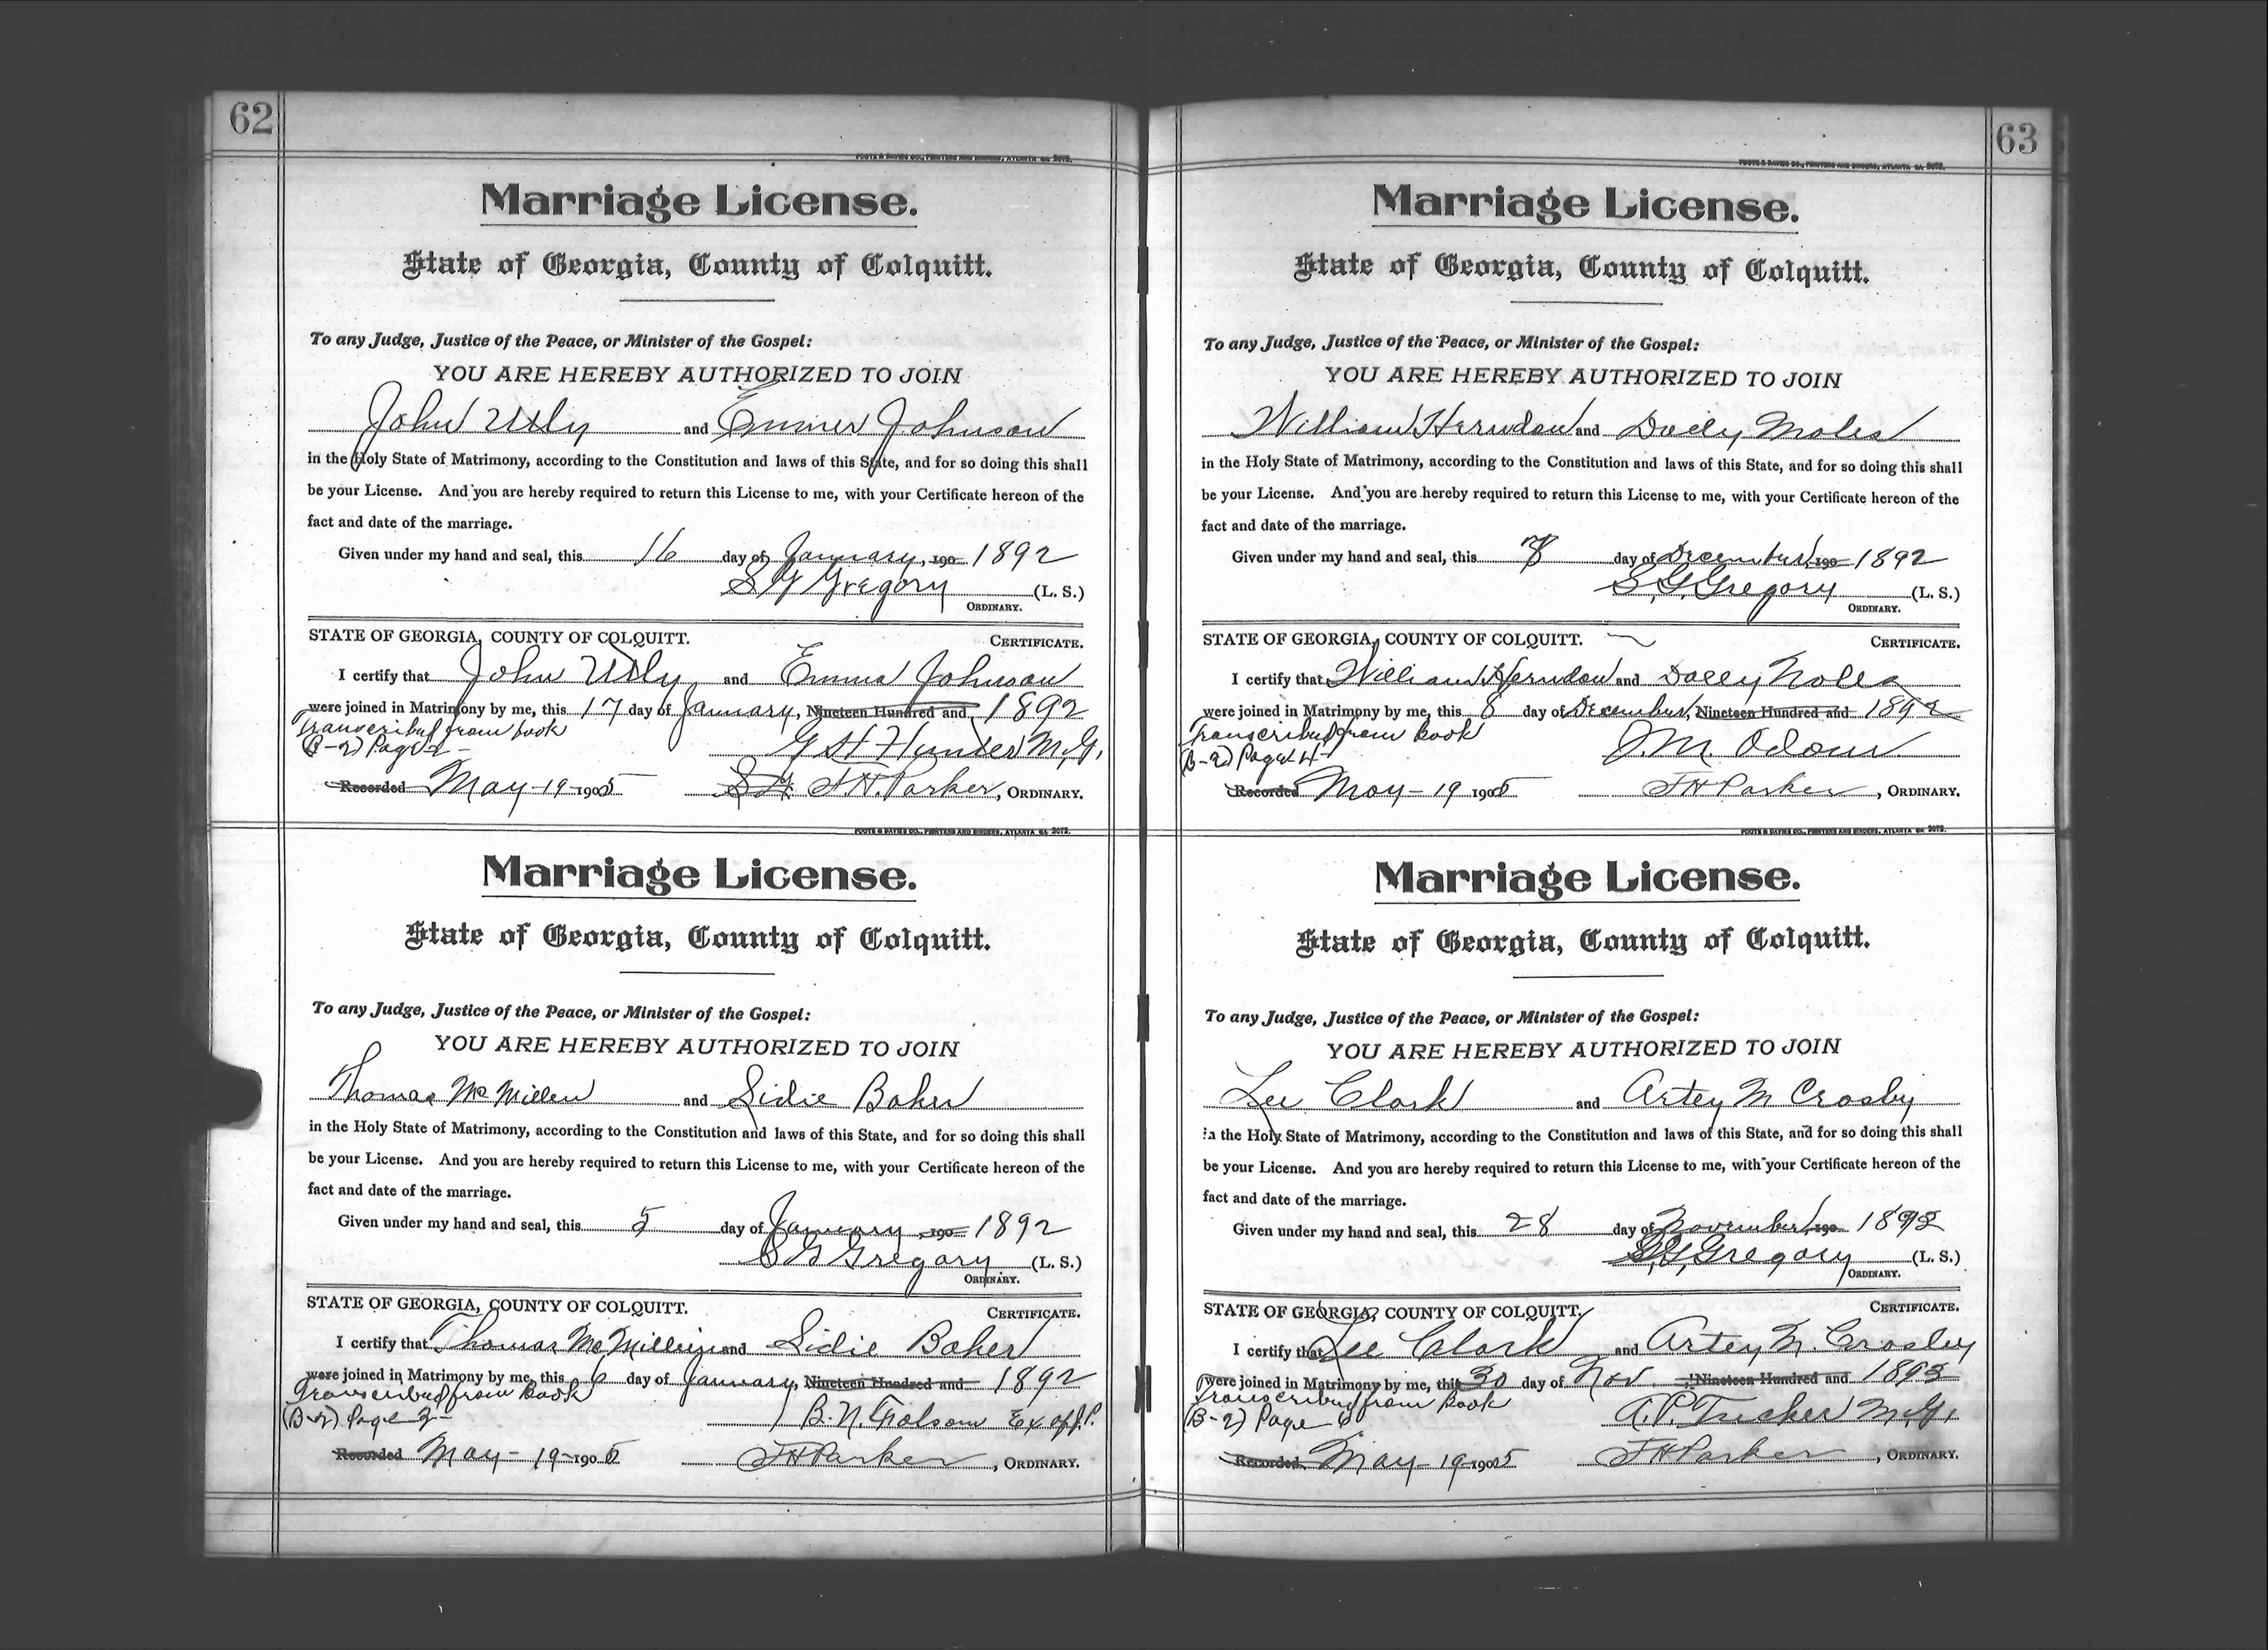 62
FOOTE & DAVIES CO., PRINTERS AND BINDERS, ATLANTA GA. 3072.
Marriage License.
State of Georgia, County of Colquitt.
To any Judge, Justice of the Peace, or Minister of the Gospel:
YOU ARE HEREBY AUTHORIZED TO JOIN
John Utly and Emmer Johnson
in the Holy State of Matrimony, according to the Constitution and laws of this State, and for so doing this shall
be your License. And you are hereby required to return this License to me, with your Certificate hereon of the
fact and date of the marriage.
Given under my hand and seal, this 16 day of January, 190 1892
S G Gregory (L. S.)
ORDINARY.
STATE OF GEORGIA, COUNTY OF COLQUITT. CERTIFICATE.
I certify that John Utly and Emma Johnson
were joined in Matrimony by me, this 17 day of January, Nineteen Hundred and 1892
Transcribed from book
(B-2) Page 2- G H Hunter M.G.
Recorded May-19-1905 F.H. Parker, ORDINARY.
FOOTE & DAVIES CO., PRINTERS AND BINDERS, ATLANTA GA. 3072.
Marriage License.
State of Georgia, County of Colquitt.
To any Judge, Justice of the Peace, or Minister of the Gospel:
YOU ARE HEREBY AUTHORIZED TO JOIN
Thomas McMillen and Sidie Baker
in the Holy State of Matrimony, according to the Constitution and laws of this State, and for so doing this shall
be your License. And you are hereby required to return this License to me, with your Certificate hereon of the
fact and date of the marriage.
Given under my hand and seal, this 5 day of January, 190 1892
S G Gregory (L. S.)
ORDINARY.
STATE OF GEORGIA, COUNTY OF COLQUITT. CERTIFICATE.
I certify that Thomas McMillen and Sidie Baker
were joined in Matrimony by me, this 6 day of January, Nineteen Hundred and 1892
Transcribed from Book
(B-2) Page B.N. Folsom Ex off J.P.
Recorded May-19-1905 F H Parker, ORDINARY.
63
FOOTE & DAVIES CO., PRINTERS AND BINDERS, ATLANTA GA. 3072.
Marriage License.
State of Georgia, County of Colquitt.
To any Judge, Justice of the Peace, or Minister of the Gospel:
YOU ARE HEREBY AUTHORIZED TO JOIN
William Herndon and Dolley Moles
in the Holy State of Matrimony, according to the Constitution and laws of this State, and for so doing this shall
be your License. And you are hereby required to return this License to me, with your Certificate hereon of the
fact and date of the marriage.
Given under my hand and seal, this day of December, 190 1892
S. G. Gregory (L. S.)
ORDINARY.
STATE OF GEORGIA, COUNTY OF COLQUITT. CERTIFICATE.
I certify that William Herndon and Dolley Noles
were joined in Matrimony by me, this 8 day of December, Nineteen Hundred and 1892
Transcribed from Book
(B-2) Page 4- J.M. Odom
Recorded May-19 1905 F H Parker, ORDINARY.
FOOTE & DAVIES CO., PRINTERS AND BINDERS, ATLANTA GA. 3072.
Marriage License.
State of Georgia, County of Colquitt.
To any Judge, Justice of the Peace, or Minister of the Gospel:
YOU ARE HEREBY AUTHORIZED TO JOIN
Lee Clark and Artey M Crosby
in the Holy State of Matrimony, according to the Constitution and laws of this State, and for so doing this shall
be your License. And you are hereby required to return this License to me, with your Certificate hereon of the
fact and date of the marriage.
Given under my hand and seal, this 28 day of November, 190
S. G. Gregory (L. S.)
ORDINARY.
STATE OF GEORGIA, COUNTY OF COLQUITT. CERTIFICATE.
I certify that Lee Clark and Artey M. Crosby
were joined in Matrimony by me, this 30 day of Nov. Nineteen Hundred and
Transcribed from Book
(B-2) Page 6 A.P. Tucker M.G.
Recorded May-19-1905 F H Parker, ORDINARY.